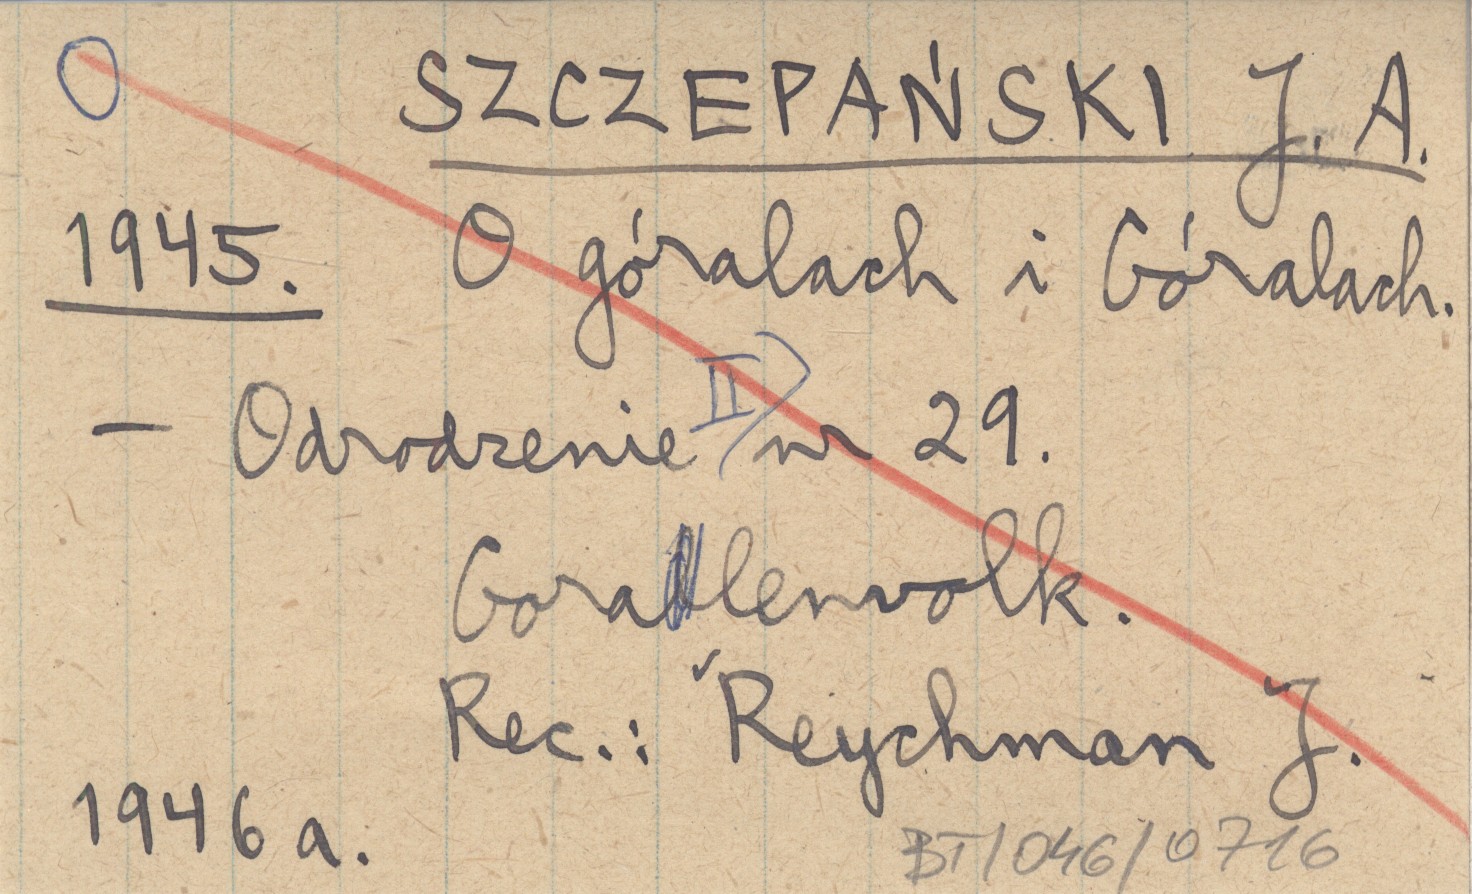 O SZCZEPAŃSKI J. A.
1945. O góralach i Góralach.
— Odrodzenie II nr 29.
Goralenvolk.
Rec.: Reychman J.
1946 a.
BT/046/0716